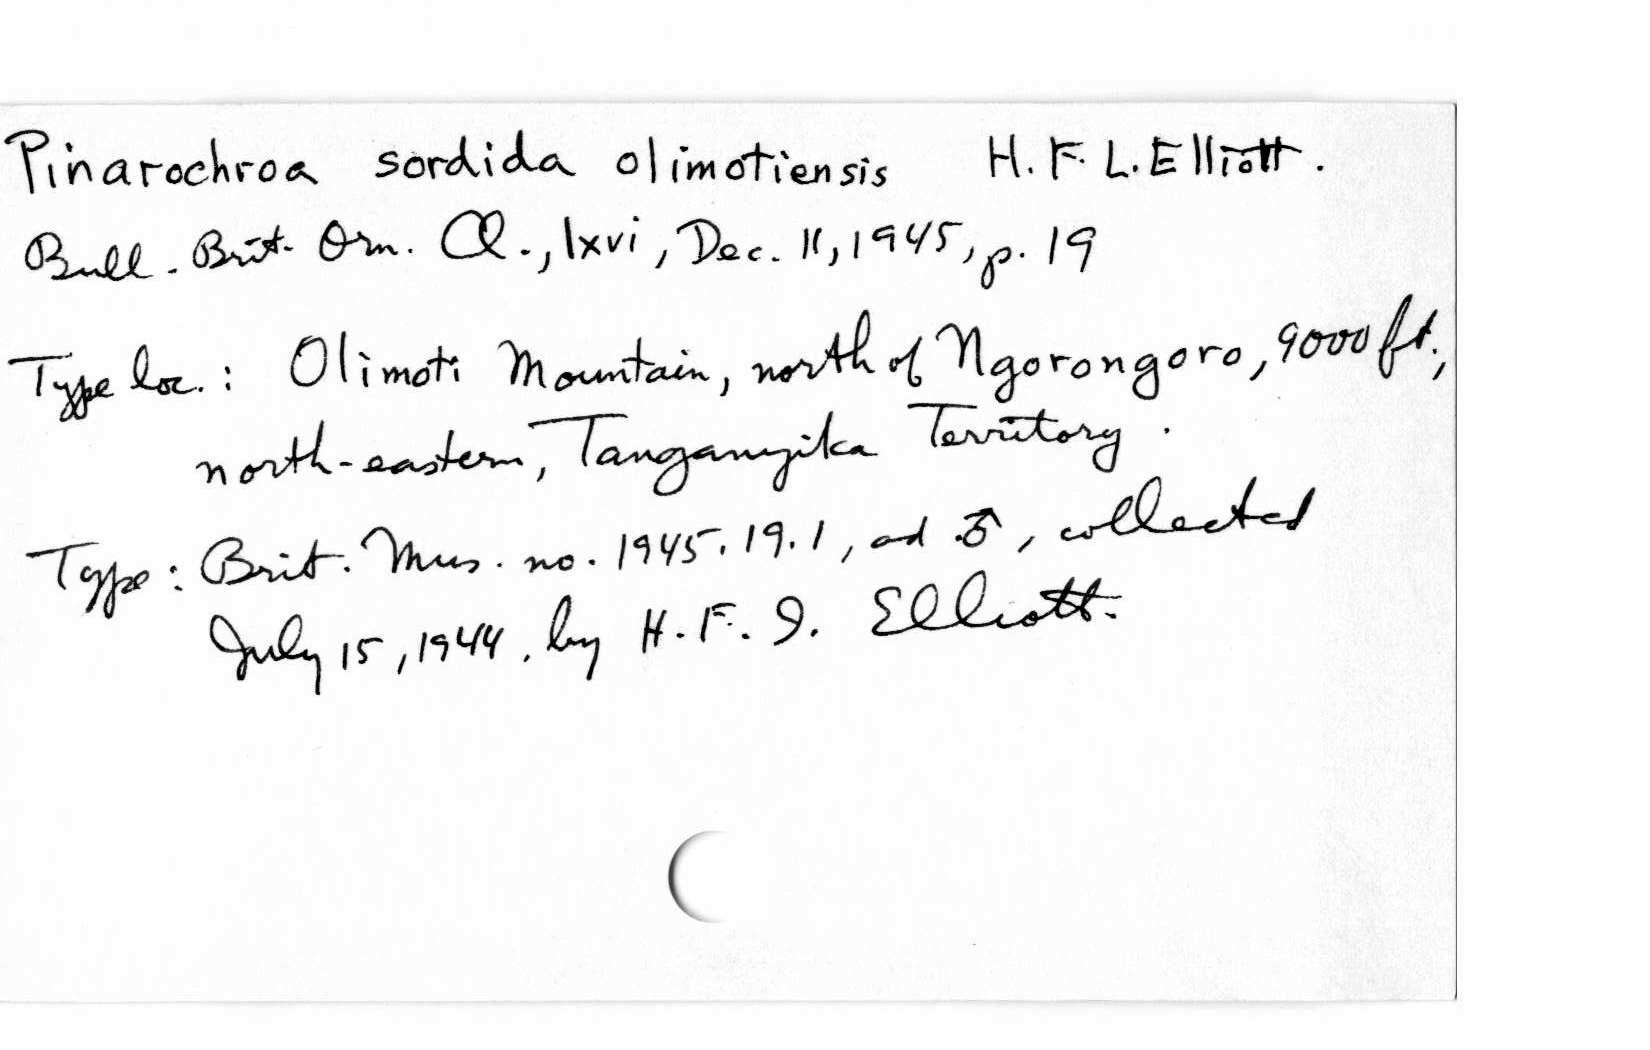 Pinarochroa sordida olimotiensis H. F. L. Elliott.
Bull. Brit. Orn. Cl., lxvi, Dec. 11, 1945, p. 19
Type loc.: Olimoti Mountain, north of Ngorongoro, 9000 ft.,
north-eastern, Tanganyika Territory.
Type: Brit. Mus. no. 1945.19.1, ad ♂, collected
July 15, 1944, by H. F. I. Elliott.